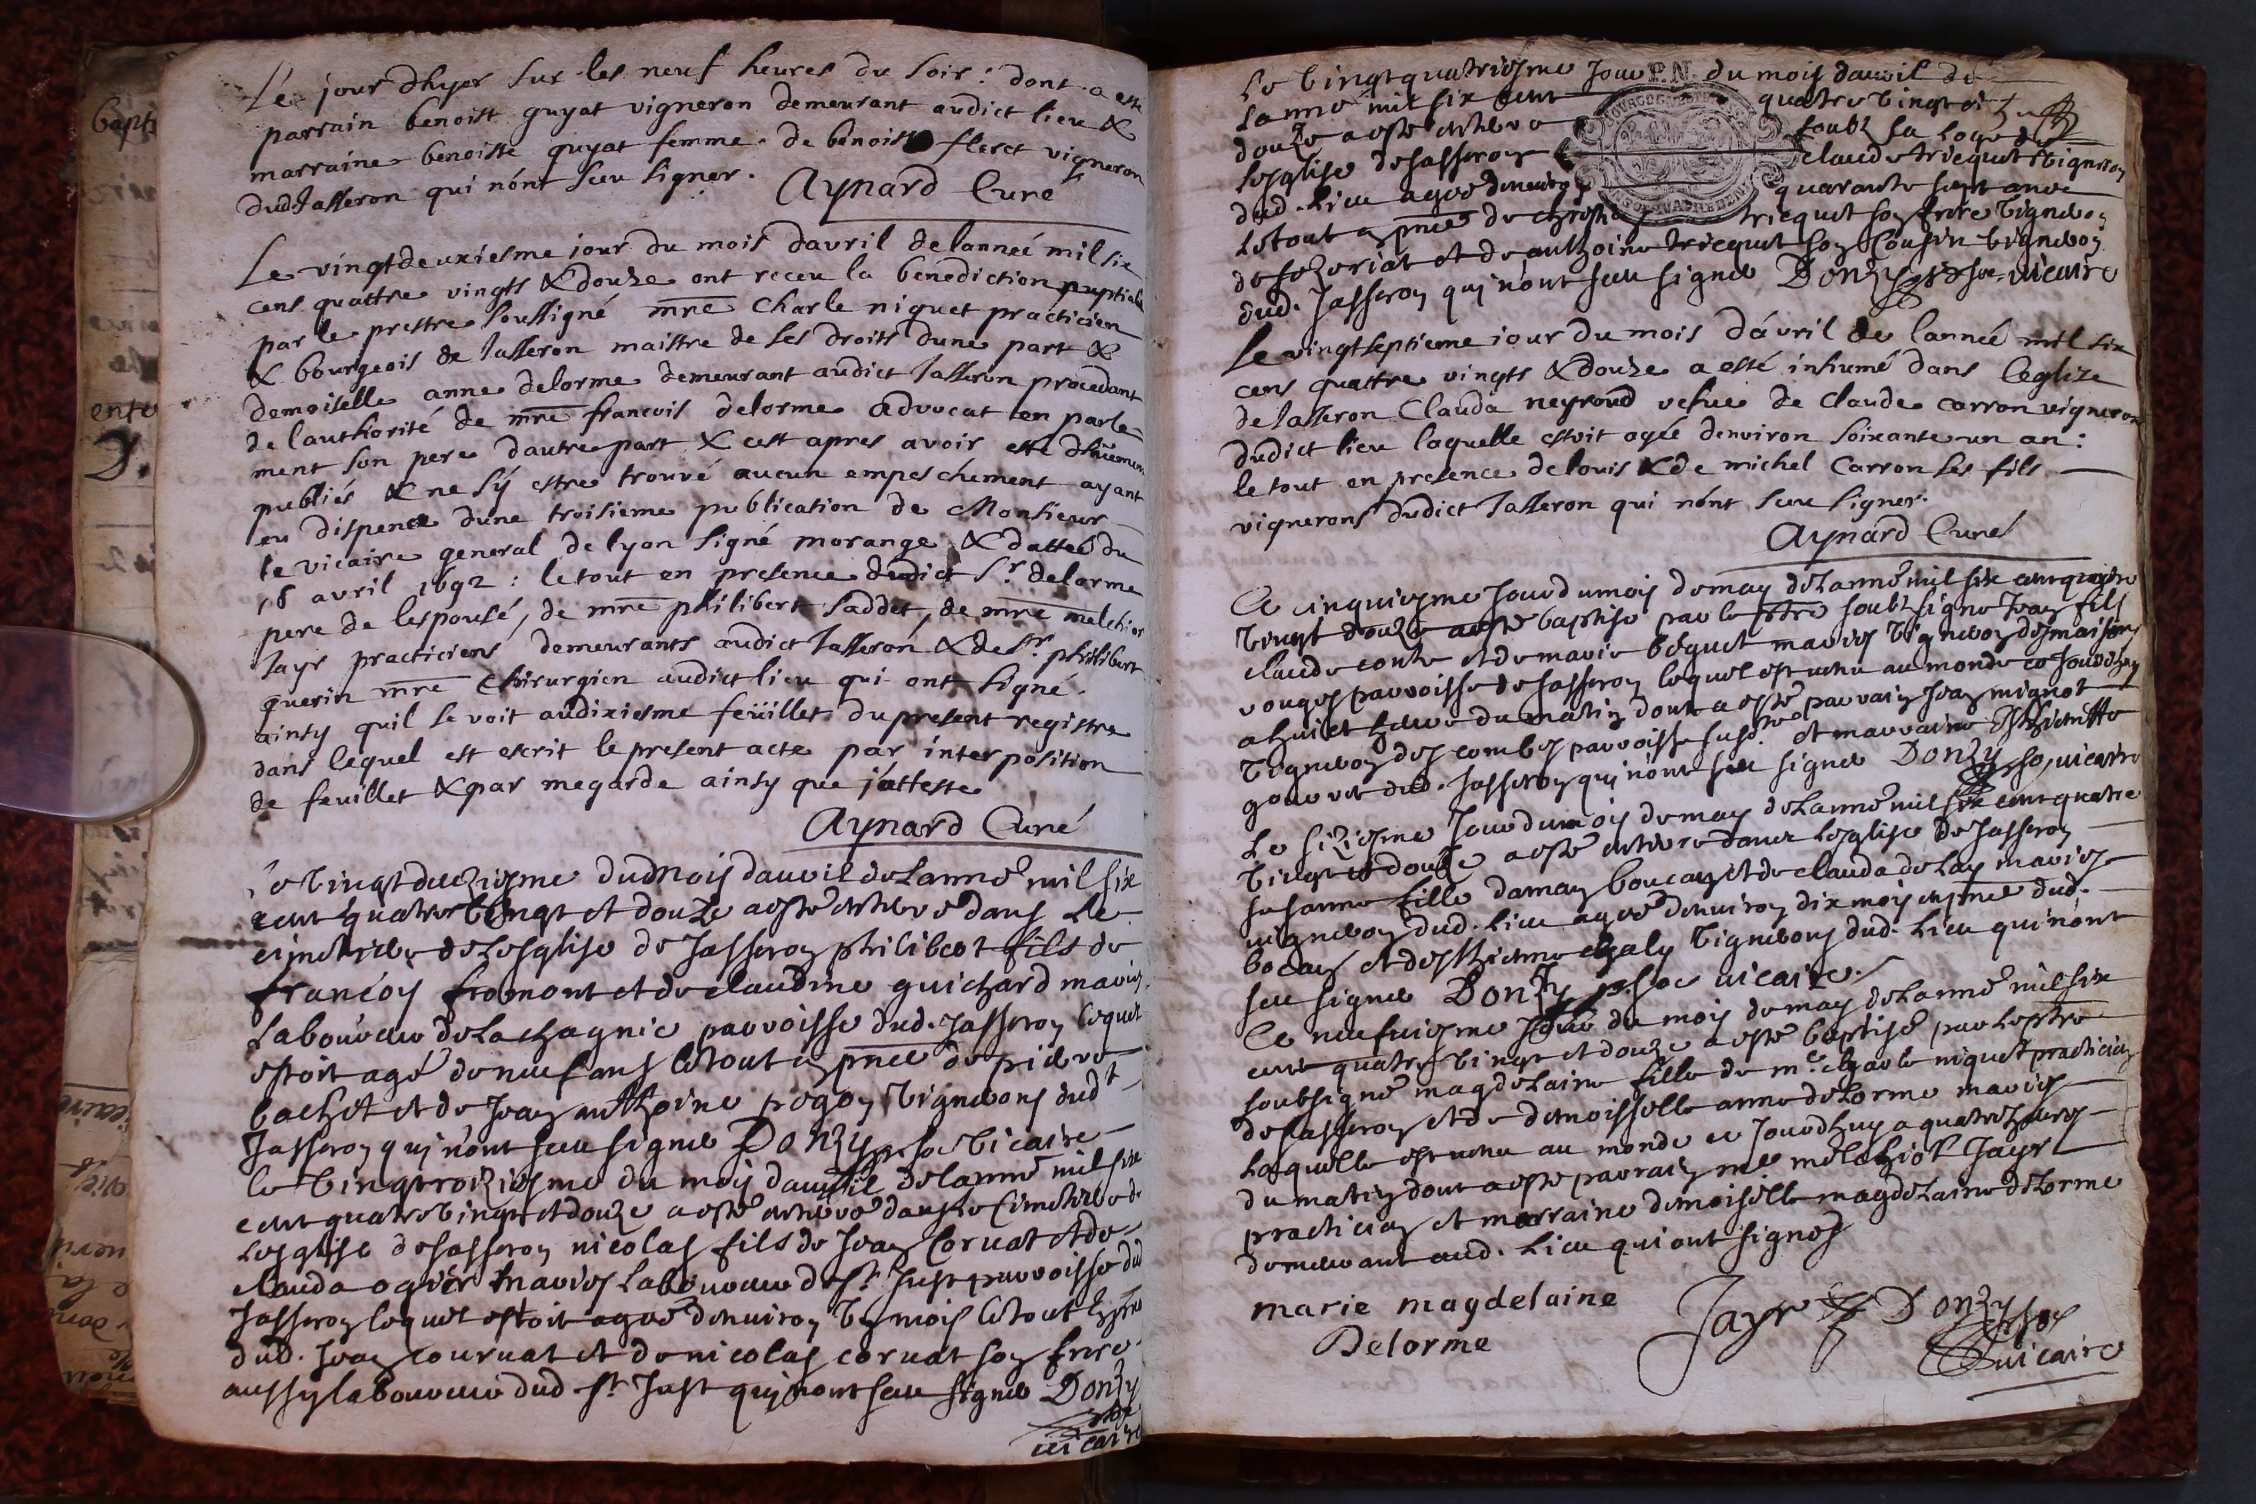 Le jour dhyer sur les neuf heures du soir : dont a esté
parrain benoist guyat vigneron demeurant audict lieu &
marraine benoiste guyat femme de benoist fleret vigneron
dud Jasseron qui nónt sceu signer. Aynard Curé
Le vingtdeuxiesme jour du mois davril de lanneé mil six
cens quattre vingts & douze ont receu la benediction nuptiale
par le prestre soussigné mre Charle niquet practicien
& bourgeois de Jasseron maistre de ses droits dune part &
demoiselle anne delorme demeurant audict Jasseron procedant
de l'authorité de mre francois delorme advocat en parle-
ment son pere dautre part & cest apres avoir esté dhuement
publiés & ne sÿ estre trouvé aucun empeschement ayant
eu dispence dune troisieme publication de Monsieur
le vicaire general de lyon signé morange & dattée du
18 avril 1692 : le tout en presence dudict Sr. delorme
pere de lespousé, de mre philibert saddet, de mre melchior
Jayr practiciens demeurants audict Jasseron & de Sr. philibert
guerin mre chirurgien audict lieu qui ont signé.
ainsy quil se voit audixiesme feüillet du present registre
dans lequel est escrit le present acte par interposition
de feuillet & par megarde ainsy que j'atteste
Aynard Curé
Le vingt deuziesme dud mois dauril de lanné mil six
cent quatre vingt et douze a esté enterré dans le
cimetiere de lesglise de Jasseron philibert fils de
françois fromont et de claudine guichard mariés
laboureur de la chagnie parroisse dud. Jasseron lequel
estoit agé de neuf ans le tout en pnce de pierre
bachet et de Jean anthoine pegon vignerons dudt
Jasseron qui n'ont sceu signer Donzy soc vicaire
le vingt troiziesme du mois dauril de lanné mil six
cent quatre vingt et douze a esté enterré dans le Cimetiere de
Lesglise de Jasseron nicolas fils de Jean Coruat et de
clauda ogier mariés laboureur de st. Just parroisse dud
Jasseron lequel estoit agé denuiron un mois le tout en pnce
dud. Jean couruat et de nicolas coruat son frere
aussy laboureur dud st. Just qui n'ont sceu signer Donzy
soc
vicaire
Le vingt quatriesme Jour P.N. du mois dauril de
lanné mil six cent quatre vingt et
douze a esté enterré soubz la loge de
lesglise de Jasseron claude tricquet vigneron
dud. lieu agé denuiron quarante sept ans
le tout en pnce de tricquet son frere vigneron
de sezeriat et de anthoine tricquet son cousin vigneron
dud. Jasseron qui n'ont sceu signer Donzy soc. vicaire
Le vingtseptieme jour du mois dávril de lanneé mil six
cens quattre vingts & douze a esté inhumé dans leglize
de Jasseron Clauda neyroud vefue de claude carron vigneron
dudict lieu laquelle estoit agée denviron soixante un an :
le tout en presence de louis & de michel Carron ses fils
vignerons dudict Jasseron qui nónt sceu signer.
Aynard Curé
Ce cinquiesme Jour du mois de may de lanné mil six cent quatre
vingt douze a esté baptisé par le ptre soubz signé Jean fils
claude conte et de marie béguet mariés vigneron des maisons
rouges parroisse de Jasseron lequel est venu au monde ce Jourdhuy
a huict heure du matin dont a esté parrain Jean mignot
vigneron des combes parroisse susd. et marraine Esthiennette
dud. Jasseron qui n'ont sceu signer Donzy soc. vicaire
Le siziesme Jour du mois de may de lanné mil six cent quatre
vingt et douze a esté enterré dans lesglise de Jasseron
susanne fille damay boucay et de clauda de lay mariés
vigneron dud. lieu agée denuiron dix mois en pnce dud.
bocay et desthienne chaly vignerons dud. lieu qui n'ont
sceu signer Donzy p. soc vicaire.
Ce neufuiesme Jour du mois de may de lanné mil six
cent quatre vingt et douze a esté baptisé par le ptre
soubsigné magdelaine fille de me. charle niquet practicien
de Jasseron et de demoisselle anne delorme mariés
laquelle est venu au monde ce Jourdhuy a quatre heures
du matin dont a esté parrain mre melchior Jayr
practicien et marraine demoiselle magdelaine delorme
demeurant aud. lieu qui ont signés
marie magdelaine
Delorme
Jayr
Donzy soc
vicaire